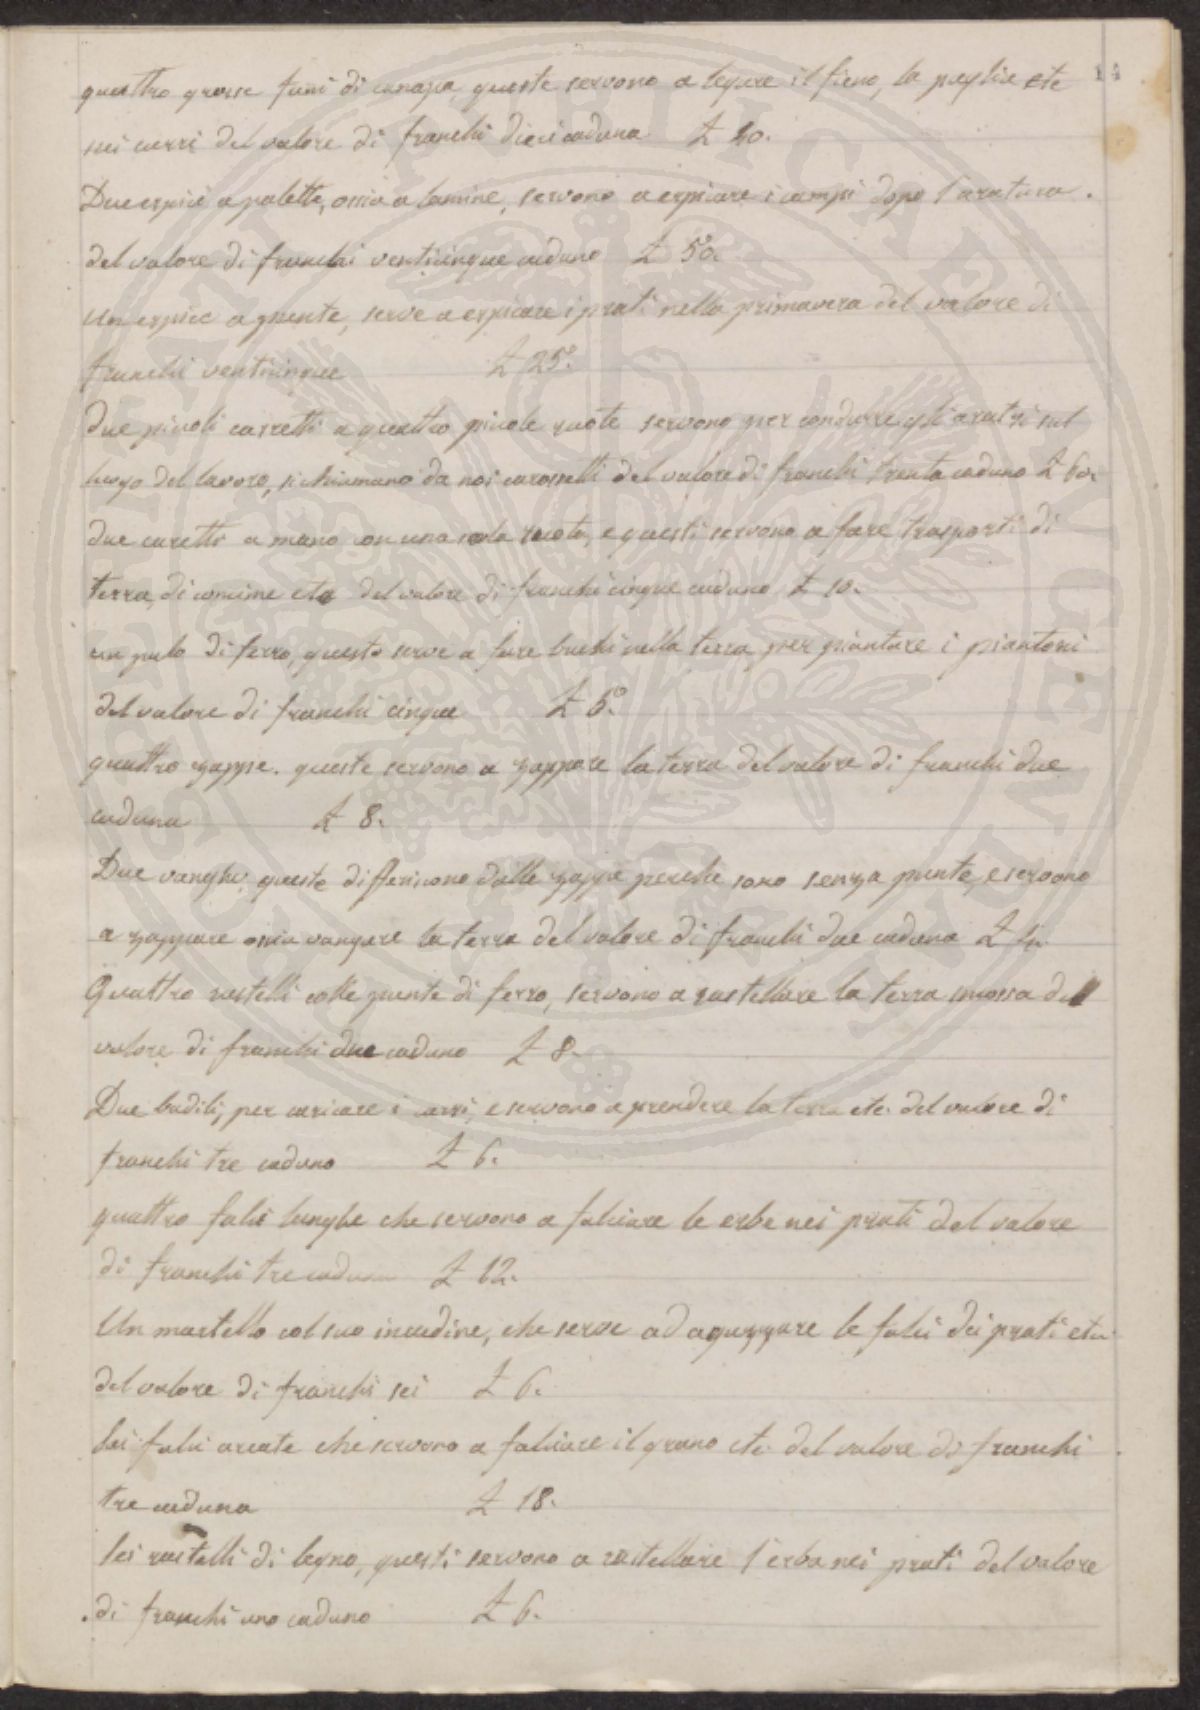 14
quattro grosse funi di canapa, queste servono a legare il fieno, la paglia etc
nei carri del valore di franchi dieci caduna £ 40.
Due erpici a palette, ossia a lamine, servono a erpicare i campi dopo l'aratura.
del valore di franchi venticinque caduno £ 50.
Un erpice a punte, serve a erpicare i prati nella primavera del valore di
franchi venticinque £ 25.
due picoli carretti a quattro picole ruote servono per condurre gli aratri sul
luogo del lavoro, si chiamano da noi carosselli del valore di franchi trenta caduno £ 60.
due caretti a mano con una sola ruota, e questi servono a fare trasporti di
terra, di concime etc del valore di franchi cinque caduno £ 10.
un palo di ferro, questo serve a fare buchi nella terra per piantare i piantoni
del valore di franchi cinque £ 5.
quattro zappe. queste servono a zappare la terra del valore di franchi due
caduna £ 8.
Due vanghe, queste differiscono dalle zappe perche sono senza punte, e servono
a zappare ossia vangare la terra del valore di franchi due caduna £ 4.
Quattro rastelli colle punte di ferro, servono a rastellare la terra smossa del
valore di franchi due caduno £ 8.
Due badili, per caricare i carri, e servono a prendere la terra etc. del valore di
franchi tre caduno £ 6.
quattro falci lunghe che servono a falciare le erbe nei prati del valore
di franchi tre caduna £ 12.
Un martello col suo incudine, che serve ad aguzzare le falci dei prati etc.
del valore di franchi sei £ 6.
Sei falci arcate che servono a falciare il grano etc. del valore di franchi
tre caduna £ 18.
Sei rastelli di legno, questi servono a rastellare l'erba nei prati del valore
di franchi uno caduno £ 6.